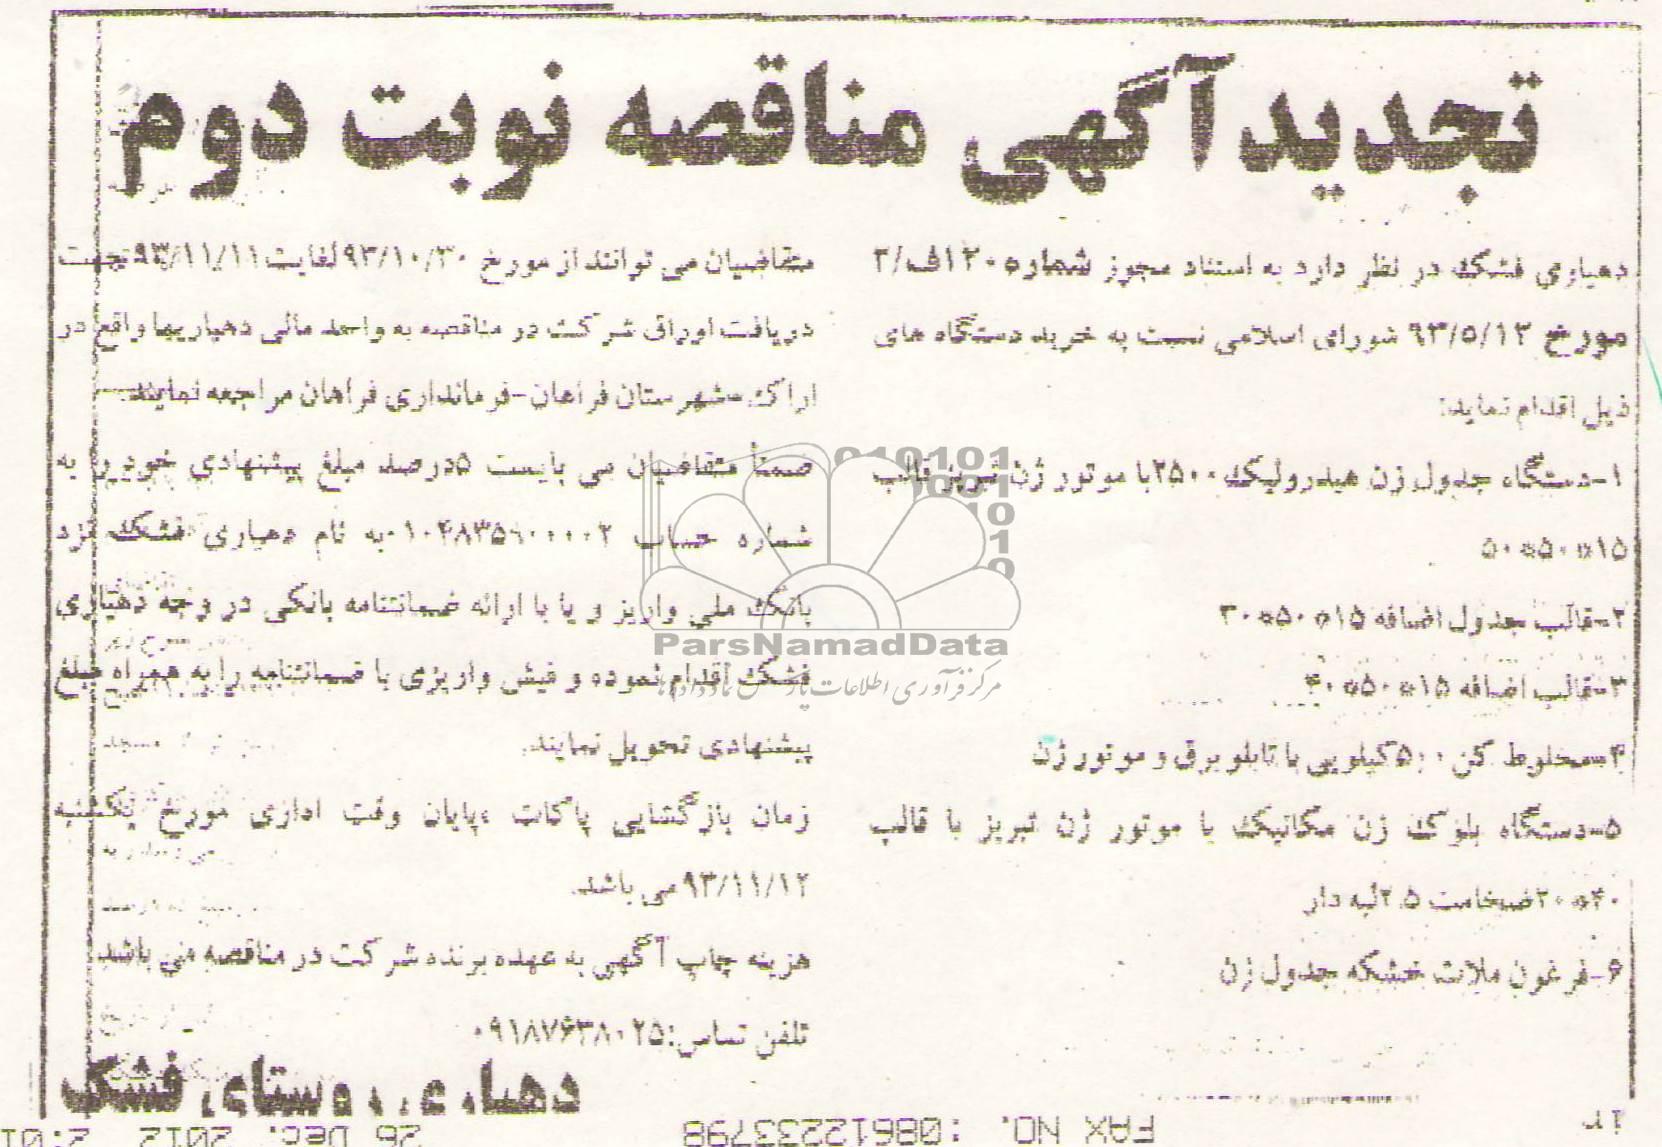 تجدید آگهی مناقصه نوبت دوم
دهیاری فشک در نظر دارد به استناد مجوز شماره ۱۲۰ف/۲
مورخ ۹۳/۵/۱۲ شورای اسلامی نسبت به خرید دستگاه های
ذیل اقدام نماید:
۱-دستگاه جدول زن هیدرولیک ۲۵۰۰با موتور ژن تبریز قالب
۱۵*۵۰*۵۰
۲-قالب جدول اضافه ۱۵*۵۰*۳۰
۳-قالب اضافه ۱۵*۵۰*۴۰
۴-مخلوط کن ۵۰۰کیلویی با تابلو برق و موتور ژن
۵-دستگاه بلوک زن مکانیک با موتور ژن تبریز با قالب
۴۰*۲۰ضخامت ۲.۵لبه دار
۶-فرغون ملات خشکه جدول زن
متقاضیان می توانند از مورخ ۹۳/۱۰/۳۰ لغایت ۹۳/۱۱/۱۱ جهت
دریافت اوراق شرکت در مناقصه به واحد مالی دهیاریها واقع در
اراک-شهرستان فراهان-فرمانداری فراهان مراجعه نمایند.
ضمناً متقاضیان می بایست ۵درصد مبلغ پیشنهادی خود را به
شماره حساب ۰۱۰۴۸۳۵۶۰۰۰۰۲ به نام دهیاری فشک نزد
بانک ملی واریز و یا با ارائه ضمانتنامه بانکی در وجه دهیاری
فشک اقدام نموده و فیش واریزی یا ضمانتنامه را به همراه مبلغ
پیشنهادی تحویل نمایند.
زمان بازگشایی پاکات ،پایان وقت اداری مورخ یکشنبه
۹۳/۱۱/۱۲ می باشد.
هزینه چاپ آگهی به عهده برنده شرکت در مناقصه می باشد.
تلفن تماس:۰۹۱۸۷۶۳۸۰۲۵
دهیاری روستای فشک
ParsNamadData
مرکز فرآوری اطلاعات پارس نماد داده ها
FAX NO. :08612233798
26 Dec. 2012